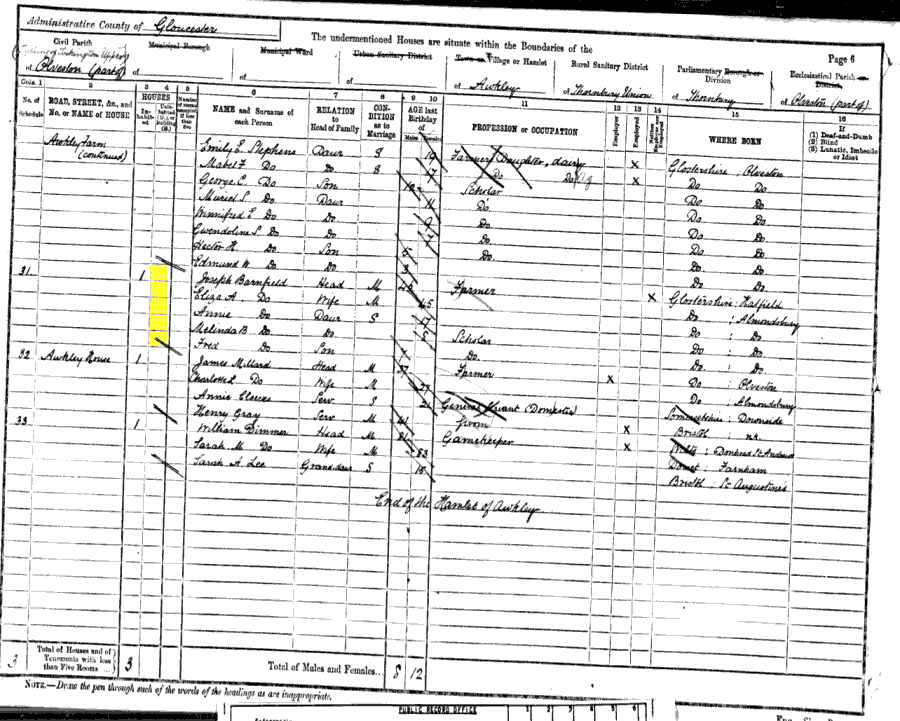 Administrative County of Gloucester
The undermentioned Houses are situate within the Boundaries of the
Page 6
Civil Parish
of Olveston (part of)
Municipal Borough
of
Municipal Ward
of
Urban Sanitary District
of
Town or Village or Hamlet
of Awkley
Rural Sanitary District
of Thornbury Union
Parliamentary Borough or Division
of Thornbury
Ecclesiastical Parish or District
of Olveston (part of)
Cols. 1 2 3 4 5 6 7 8 9 10 11 12 13 14 15 16
No. of Schedule
ROAD, STREET, &c., and No. or NAME of HOUSE
HOUSES
Inhabited
Uninhabited (U.), or Building (B.)
Number of rooms occupied if less than five
NAME and Surname of each Person
RELATION to Head of Family
CONDITION as to Marriage
AGE last Birthday of
Males Females
PROFESSION or OCCUPATION
Employer
Employed
WHERE BORN
If
(1) Deaf-and-Dumb
(2) Blind
(3) Lunatic, Imbecile or Idiot
Awkley Farm (continued) Emily E. Stephens Daur S 19 Farmers Daughter, dairy X Glostershire, Olveston
Mabel F. Do Do S 17 Do Do Ag X Do Do
George C. Do Son Scholar Do Do
Muriel S. Do Daur 11 Do Do Do
Winnifred E. Do Do 9 Do Do Do
Gwendoline S. Do Do Do Do Do
Hector H. Do Son Do Do Do
Edmund W. Do Do 3 Do Do
31 1 Joseph Barnfield Head M Farmer X Glostershire: Hatfield
Eliza A. Do Wife M 45 Do ; Almondsbury
Annie Do Daur S 17 Do ; Do
Melinda B Do Do Scholar Do ; Do
Fred Do Son Do Do ; Do
32 Awkley House 1 James Millard Head M 37 Farmer X Do ; Olveston
Charlotte L. Do Wife M 27 Do ; Almondsbury
Annie Cleeves Serv S 21 General Servant (Domestic) Somersetshire: Downside
Henry Gray Serv M Groom X Bristol ; nk
33 1 William Dimmer Head M Gamekeeper X Wilts ; Donhead St Andrews
Sarah M Do Wife M 53 Dorset ; Farnham
Sarah A. Lee Grand daur S 15 Bristol : St Augustines
End of the Hamlet of Awkley
3 Total of Houses and of Tenements with less than Five Rooms 3
Total of Males and Females... 8 12
NOTE.—Draw the pen through such of the words of the headings as are inappropriate.
PUBLIC RECORD OFFICE
1 2 3 4 5 6